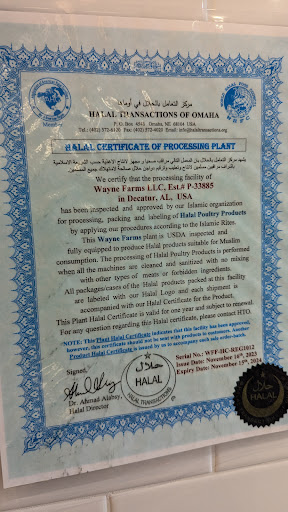 مركز التعامل بالحلال في أوماها
HALAL TRANSACTIONS OF OMAHA
P. O. Box 4546 Omaha, NE 68104 USA
Tel.: (402) 572-6120 Fax: (402) 572-4020 Email: info@halaltransactions.org
HALAL CERTIFICATE OF PROCESSING PLANT
We certify that the processing facility of
Wayne Farms LLC, Est.# P-33885
in Decatur, AL, USA
has been inspected and approved by our Islamic organization
for processing, packing and labeling of Halal Poultry Products
by applying our procedures according to the Islamic Rites.
This Wayne Farms plant is USDA inspected and
fully equipped to produce Halal products suitable for Muslim
consumption. The processing of Halal Poultry Products is performed
when all the machines are cleaned and sanitized with no mixing
with other types of meats or forbidden ingredients.
All packages/cases of the Halal products packed at this facility
are labeled with our Halal Logo and each shipment is
accompanied with our Halal Certificate for the Product.
This Plant Halal Certificate is valid for one year and subject to renewal.
For any question regarding this Halal certificate, please contact HTO.
NOTE: This Plant Halal Certificate indicates that this facility has been approved,
however, this certificate should not be sent with products to customers. Another
Product Halal Certificate is issued to accompany each sale order-batch.
Signed:
Serial No.: WFF-HC-REG1012
Issue Date: November 16th, 2023
Expiry Date: November 15th, 2024
Dr. Ahmad Alabsy,
Halal Director
حلال
HALAL
HALAL TRANSACTIONS
حلال
HALAL